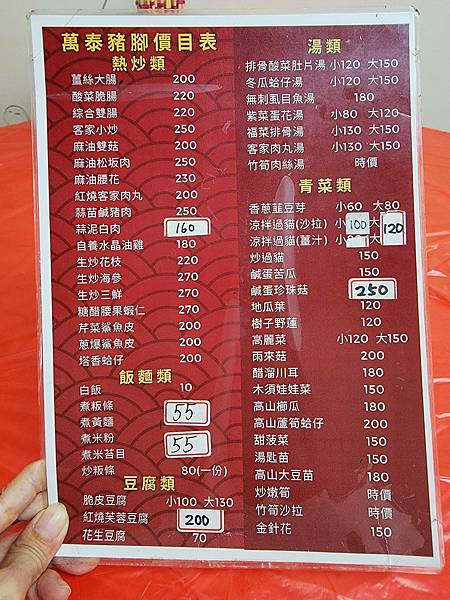 萬泰豬腳價目表
熱炒類
薑絲大腸 200
酸菜脆腸 220
綜合雙腸 220
客家小炒 250
麻油雙菇 200
麻油松坂肉 250
麻油腰花 230
紅燒客家肉丸 200
蒜苗鹹豬肉 250
蒜泥白肉 160
自養水晶油雞 180
生炒花枝 220
生炒海參 270
生炒三鮮 270
糖醋腰果蝦仁 270
芹菜鯊魚皮 200
蔥爆鯊魚皮 200
塔香蛤仔 200
飯麵類
白飯 10
煮粄條 55
煮黃麵
煮米粉 55
煮米苔目
炒粄條 80(一份)
豆腐類
脆皮豆腐 小100 大130
紅燒芙蓉豆腐 200
花生豆腐 70
湯類
排骨酸菜肚片湯 小120 大150
冬瓜蛤仔湯 小120 大150
無刺虱目魚湯 180
紫菜蛋花湯 小80 大120
福菜排骨湯 小130 大150
客家肉丸湯 小130 大150
竹筍肉絲湯 時價
青菜類
香蔥韮豆芽 小60 大80
涼拌過貓(沙拉) 小 100 120
涼拌過貓(薑汁) 小
炒過貓 150
鹹蛋苦瓜 150
鹹蛋珍珠菇 250
地瓜葉 120
樹子野蓮 120
高麗菜 小120 大150
雨來菇 200
醋溜川耳 180
木須娃娃菜 150
高山櫛瓜 180
高山蘆筍蛤仔 200
甜菠菜 150
湯匙苗 150
高山大豆苗 180
炒嫩筍 時價
竹筍沙拉 時價
金針花 150